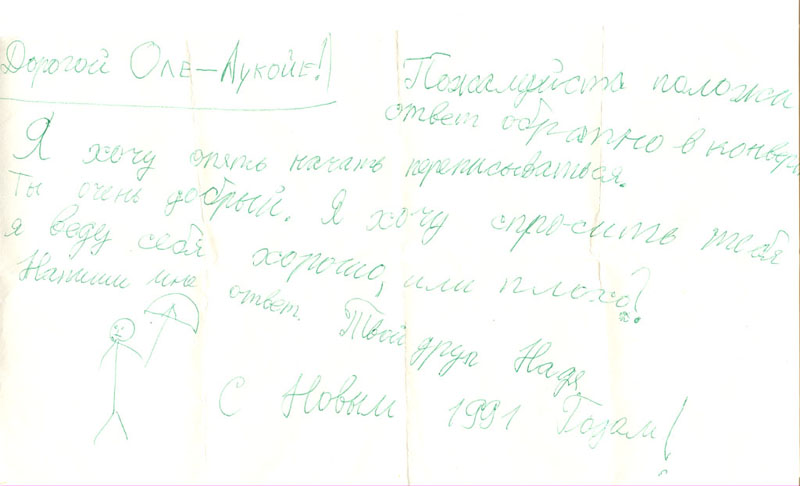 Дорогой Оле-Лукойе!
Пожалуйста положи
ответ обратно в конверт
Я хочу опять начать переписываться.
Ты очень добрый. Я хочу спросить тебя
я веду себя хорошо, или плохо?
Напиши мне ответ. Твой друг Надя
С Новым 1991 Годом!